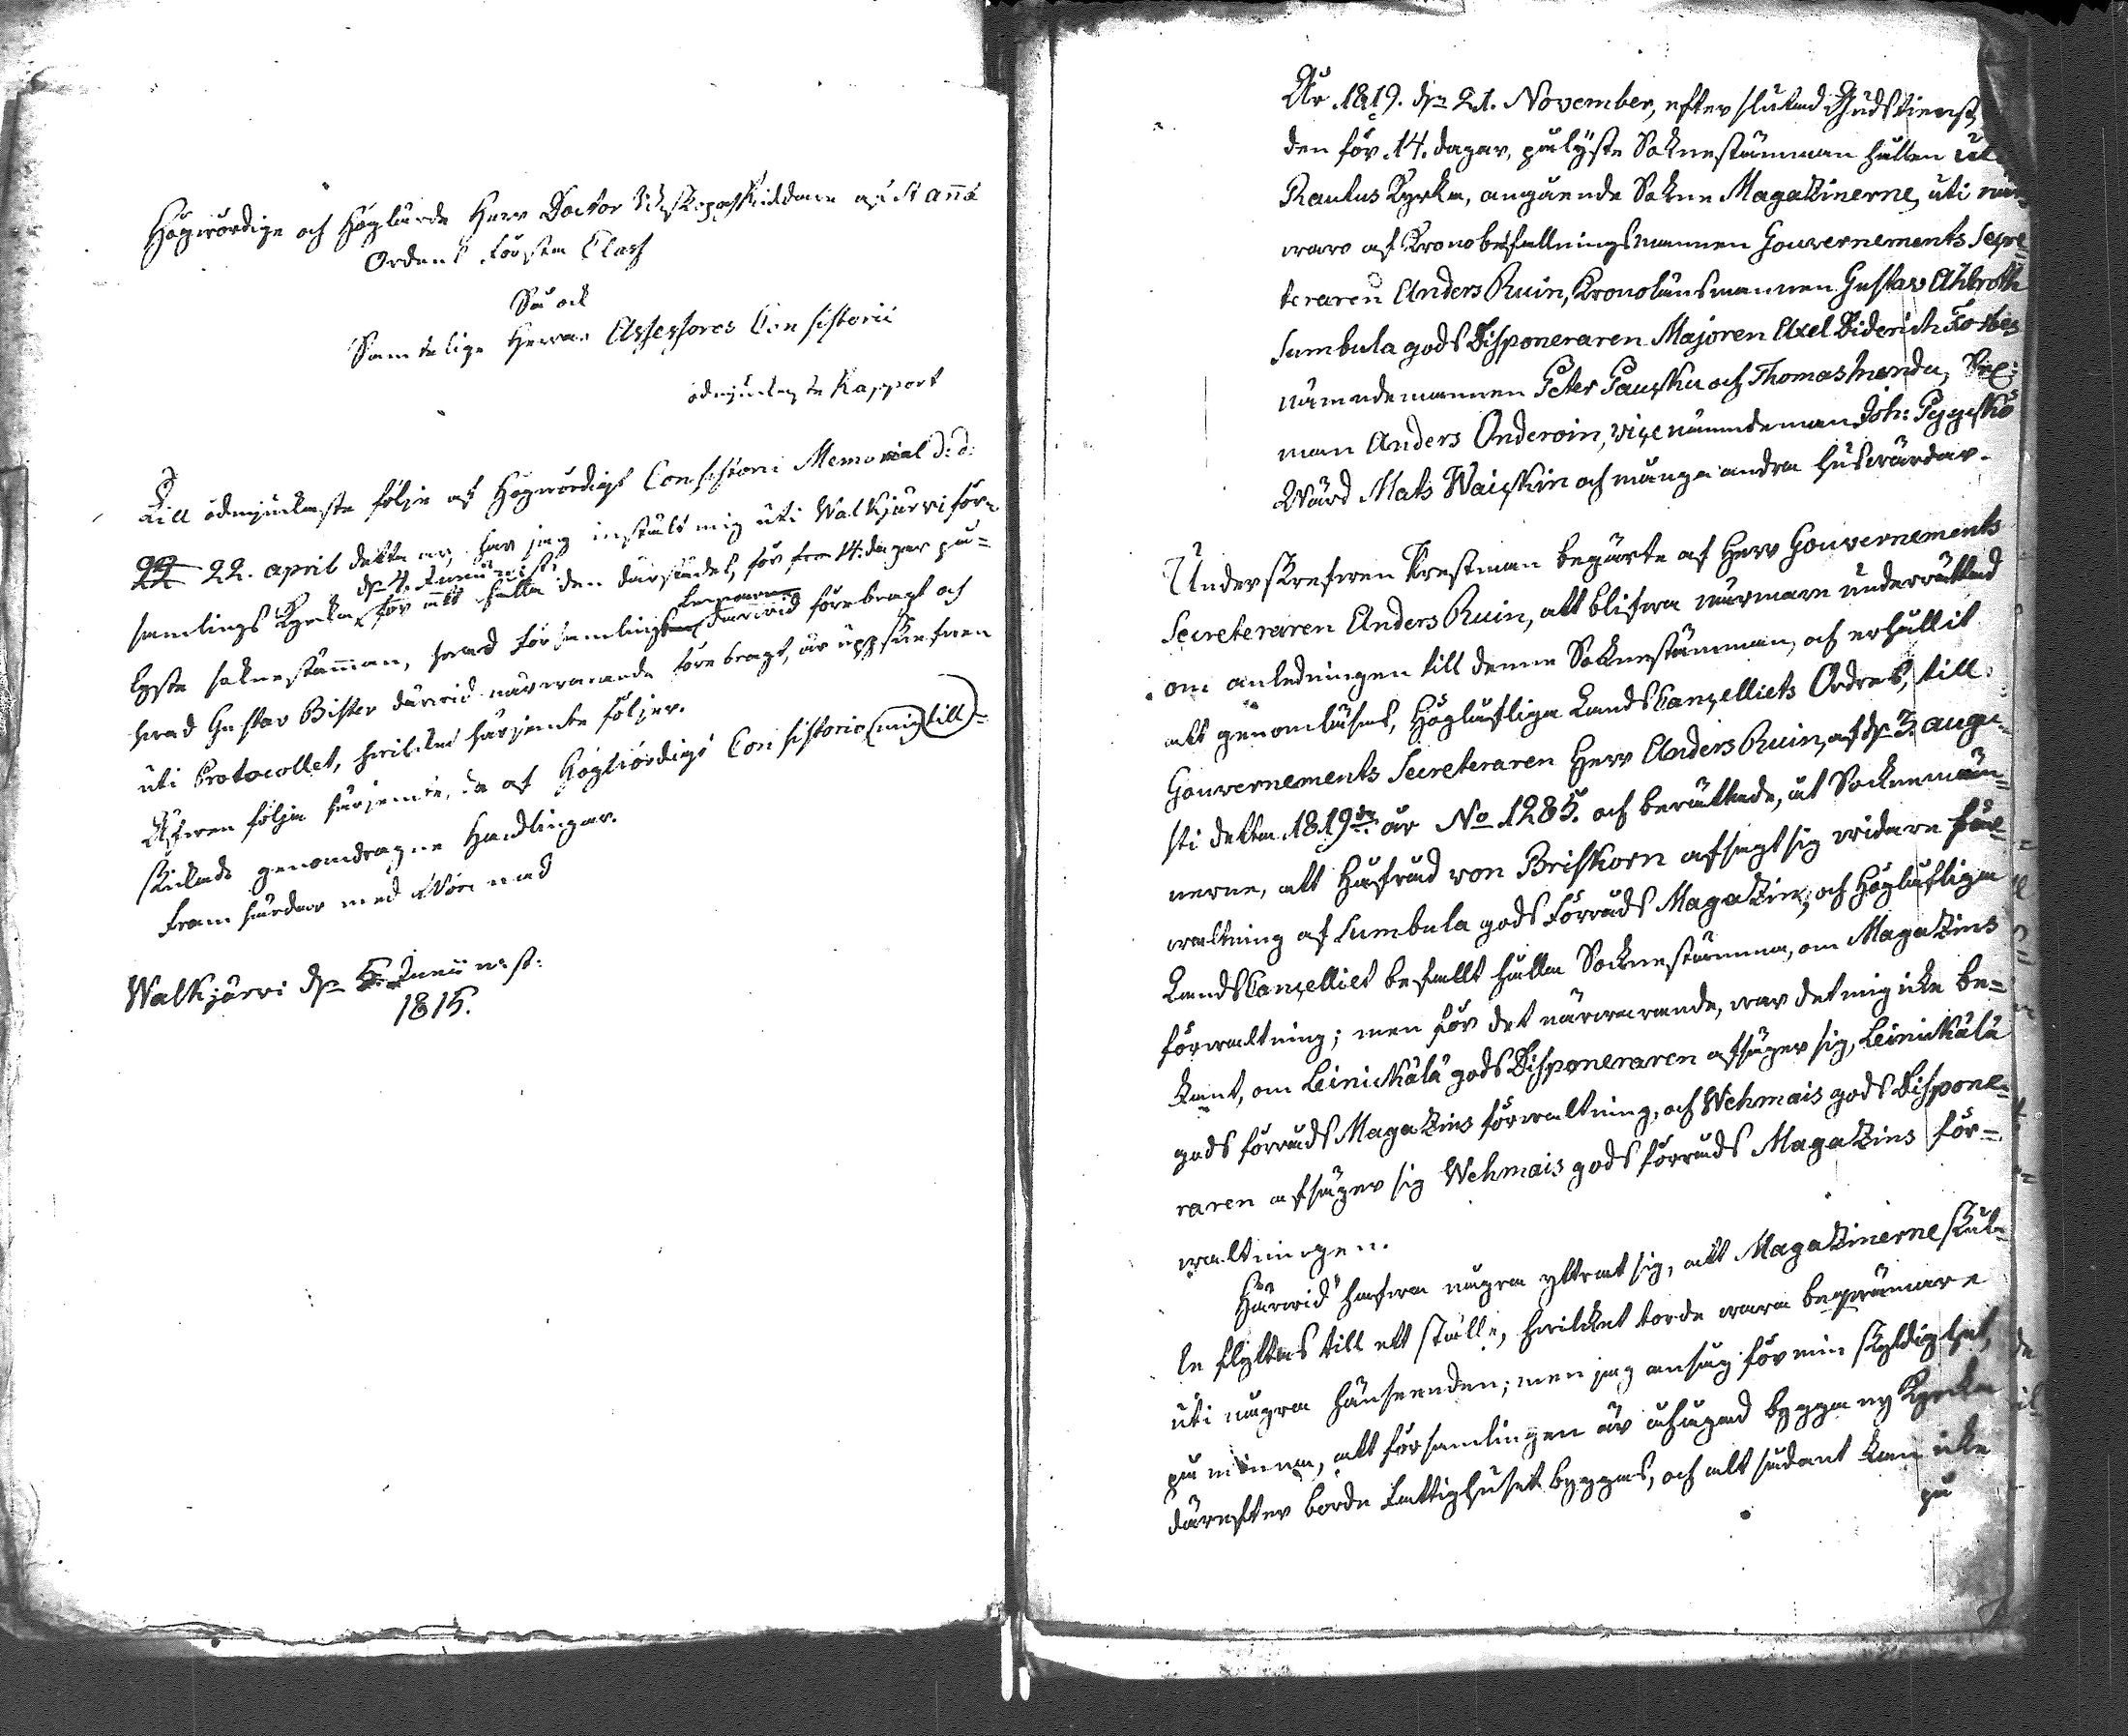 Högwördige och Höglärde Herr Doctor Biskopen Riddare af St Annæ
Ordens Första Class
Så ock
Samtelige Herrar Assessores Consistorii
ödmjukaste Rapport
Till ödmjukaste följe af Högwördigt Consistorii Memorial d: d:
22 22. april detta år, har jag instält mig uti Walkjärvi för-
d. 4. Junii n: st:
samlings Kyrka, för att hålla den därstädes, för 14. dagar på-
lyste sokneståmman, hwad Församlings därwid förebragt och
hwad Gustav Bister därwid närwarande förebragt, är uppskrefwen
uti Protocollet, hwilket härjemte följer.
Äfwen följa härjemte, de af Högwördigt Consistorio (mig) till-
skickade genomdragne Handlingar.
Framhärdar med Wörnad
Walkjärvi d. 5. Junii n: st:
1815.
År 1819. d. 21. November, efter slutad Gudstienst,
den för 14. dagar, pålyste Soknestämman hållen uti
Rautus Kyrka, angående Sokne Magazinerne, uti när-
waro af Kronobefallningsmannen Gouvernements Secre-
teraren Anders Ruin, Kronolänsmannen Gustav Ahlroth
Sumbula gods Disponeraren Majoren Axel Diderich Forbes
nämndemannen Peter Pauska och Thomas Inenda, Sex-
man Anders Onderoin, vice nämndeman Joh: Pyyskö
Wärd Mats Waiskin och många andra huswärdar.
Underskrefwen Prestman begärte af Herr Gouvernements
Secreteraren Anders Ruin, att blifwa närmare underrättad
om anledningen till denne Soknestämman, och erhållit
att genomläsas, Höglofliga LandsCancelliets Ordres, till
Gouvernements Secreteraren Herr Anders Ruin, af d. 3. augu-
sti detta 1819de år No 1285. och berättade, åt Socknemän-
nerne, att Hofråd von Briskorn afsagt sig widare för-
waltning af Sumbula gods Förråds Magazin, och Höglofliga
LandsCancelliet befallt hålla Soknestämma, om Magazins
förwaltning; men för det närwarande, war det mig icke be-
kant, om Leinickälä gods Disponeraren afsäger sig, Leinickälä
gods förråds Magazins förwaltning, och Wehmais gods Dispone-
raren afsäger sig Wehmais gods förråds Magazins för-
waltningen.
Härwid hafwa några yttrat sig, att Magazinerne skul-
le flyttas till ett ställe, hwilket torde wara beqwämare
uti några hänseenden; men jag ansåg för min skyldighet,
påminna, att församlingen är ålagad bygga ny Kyrka
därefter borde Fattighuset byggas, och alt sådant kan icke
på